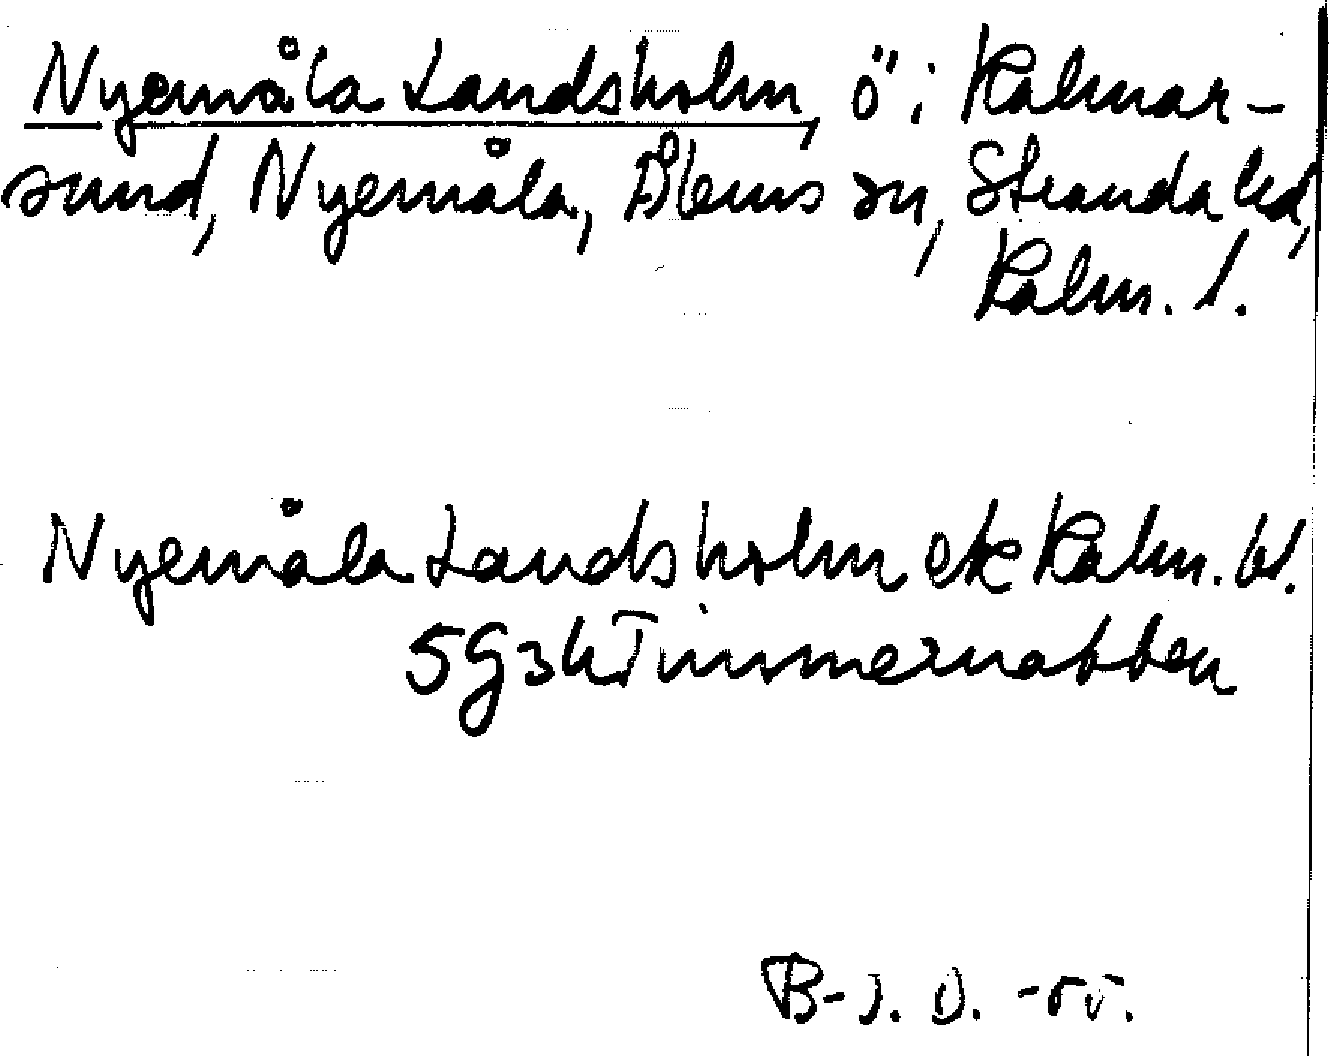 Nyemåla Landsholm, ö i Kalmar-
sund, Nyemåla, Ålems sn, Stranda hd,
Kalm. l.
Nyemåla Landsholm ek Kalm. bl.
5G3h Timmernabben
B-J. D. -55.